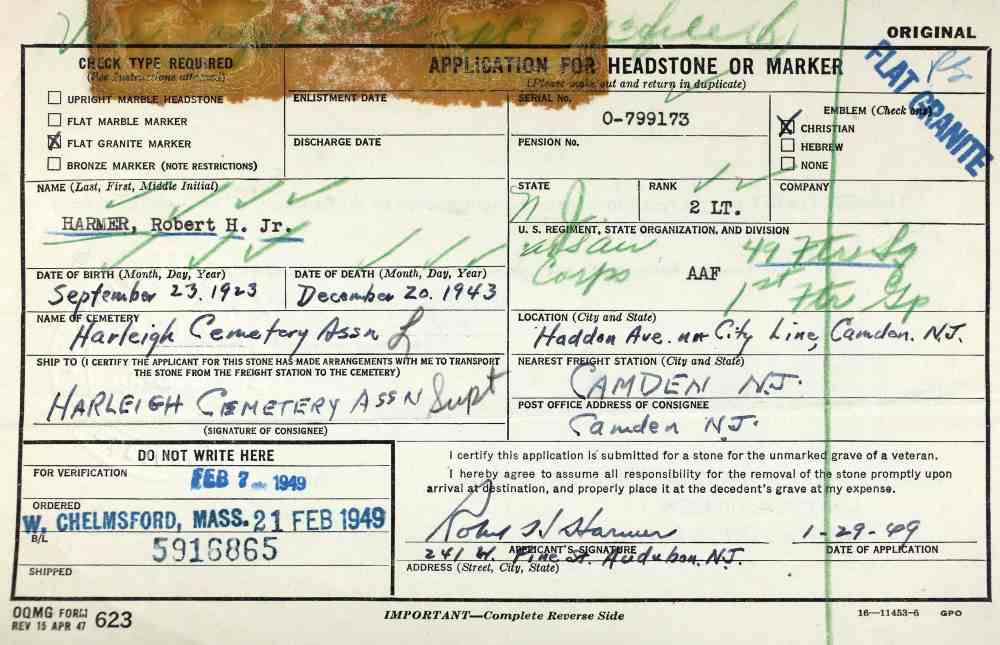 ORIGINAL
CHECK TYPE REQUIRED
(See Instructions attached)
UPRIGHT MARBLE HEADSTONE
FLAT MARBLE MARKER
FLAT GRANITE MARKER
BRONZE MARKER (NOTE RESTRICTIONS)
APPLICATION FOR HEADSTONE OR MARKER
(Please make out and return in duplicate)
FLAT GRANITE
ENLISTMENT DATE
DISCHARGE DATE
SERIAL No.
O-799173
PENSION No.
EMBLEM (Check one)
CHRISTIAN
HEBREW
NONE
NAME (Last, First, Middle Initial)
HARMER, Robert H. Jr.
STATE
N J
RANK
2 LT.
COMPANY
U. S. REGIMENT, STATE ORGANIZATION, AND DIVISION
Air
Corps
AAF
49 Ftr Sq
1st Ftr Gp
DATE OF BIRTH (Month, Day, Year)
September 23. 1923
DATE OF DEATH (Month, Day, Year)
December 20. 1943
NAME OF CEMETERY
Harleigh Cemetery Assn
LOCATION (City and State)
Haddon Ave. nr City Line, Camden. N.J.
SHIP TO (I CERTIFY THE APPLICANT FOR THIS STONE HAS MADE ARRANGEMENTS WITH ME TO TRANSPORT
THE STONE FROM THE FREIGHT STATION TO THE CEMETERY)
HARLEIGH CEMETERY ASSN Supt
(SIGNATURE OF CONSIGNEE)
NEAREST FREIGHT STATION (City and State)
CAMDEN N.J.
POST OFFICE ADDRESS OF CONSIGNEE
Camden N.J.
DO NOT WRITE HERE
FOR VERIFICATION
FEB 7 1949
ORDERED
W. CHELMSFORD, MASS. 21 FEB 1949
B/L
5916865
SHIPPED
I certify this application is submitted for a stone for the unmarked grave of a veteran.
I hereby agree to assume all responsibility for the removal of the stone promptly upon
arrival at destination, and properly place it at the decedent's grave at my expense.
Robt H Harmer
1-29-49
APPLICANT'S SIGNATURE
DATE OF APPLICATION
241 W. Pine St. Audubon. N.J.
ADDRESS (Street, City, State)
OQMG FORM
REV 15 APR 47 623
IMPORTANT—Complete Reverse Side
16—11453-6 GPO